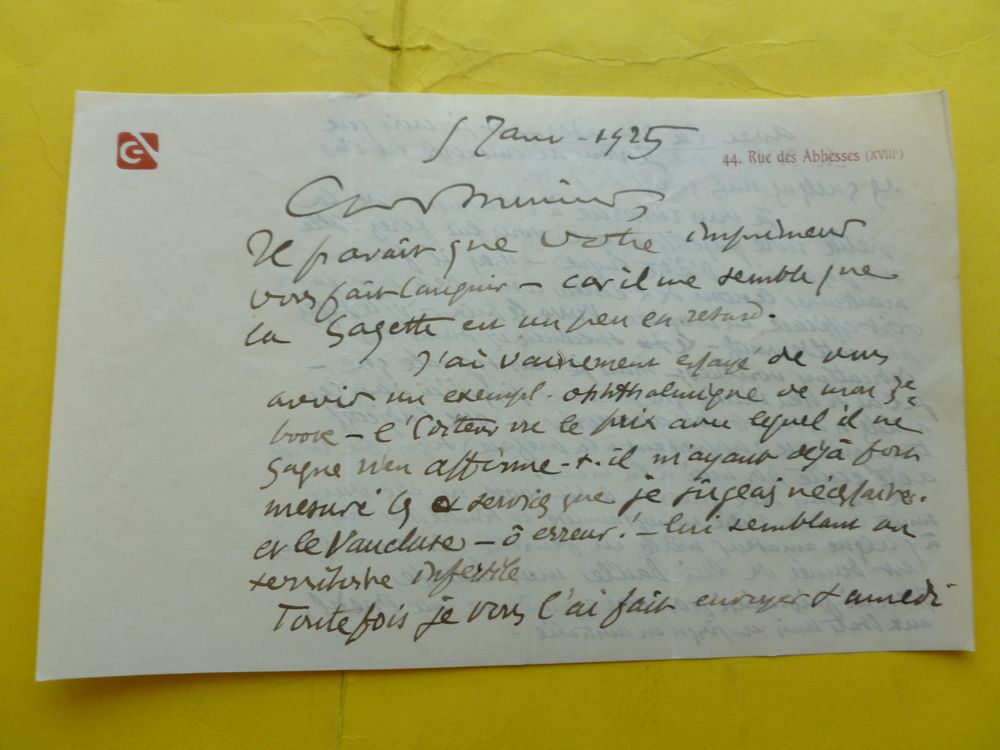 5 Janv - 1925
44. Rue des Abbesses (XVIIIᵉ)
Cher Monsieur
Il paraît que votre imprimeur
vous fait languir – car il me semble que
la Gazette est un peu en retard.
J'ai vainement essayé de vous
avoir un exempl. de mon 3e
book – l'éditeur vu le prix avec lequel il ne
gagne rien affirme-t-il m'ayant déjà fort
mesuré les services que je jugeais nécessaires.
et le Vaucluse – ô erreur! – lui semblant un
territoire infertile
Toutefois je vous l'ai fait envoyer samedi